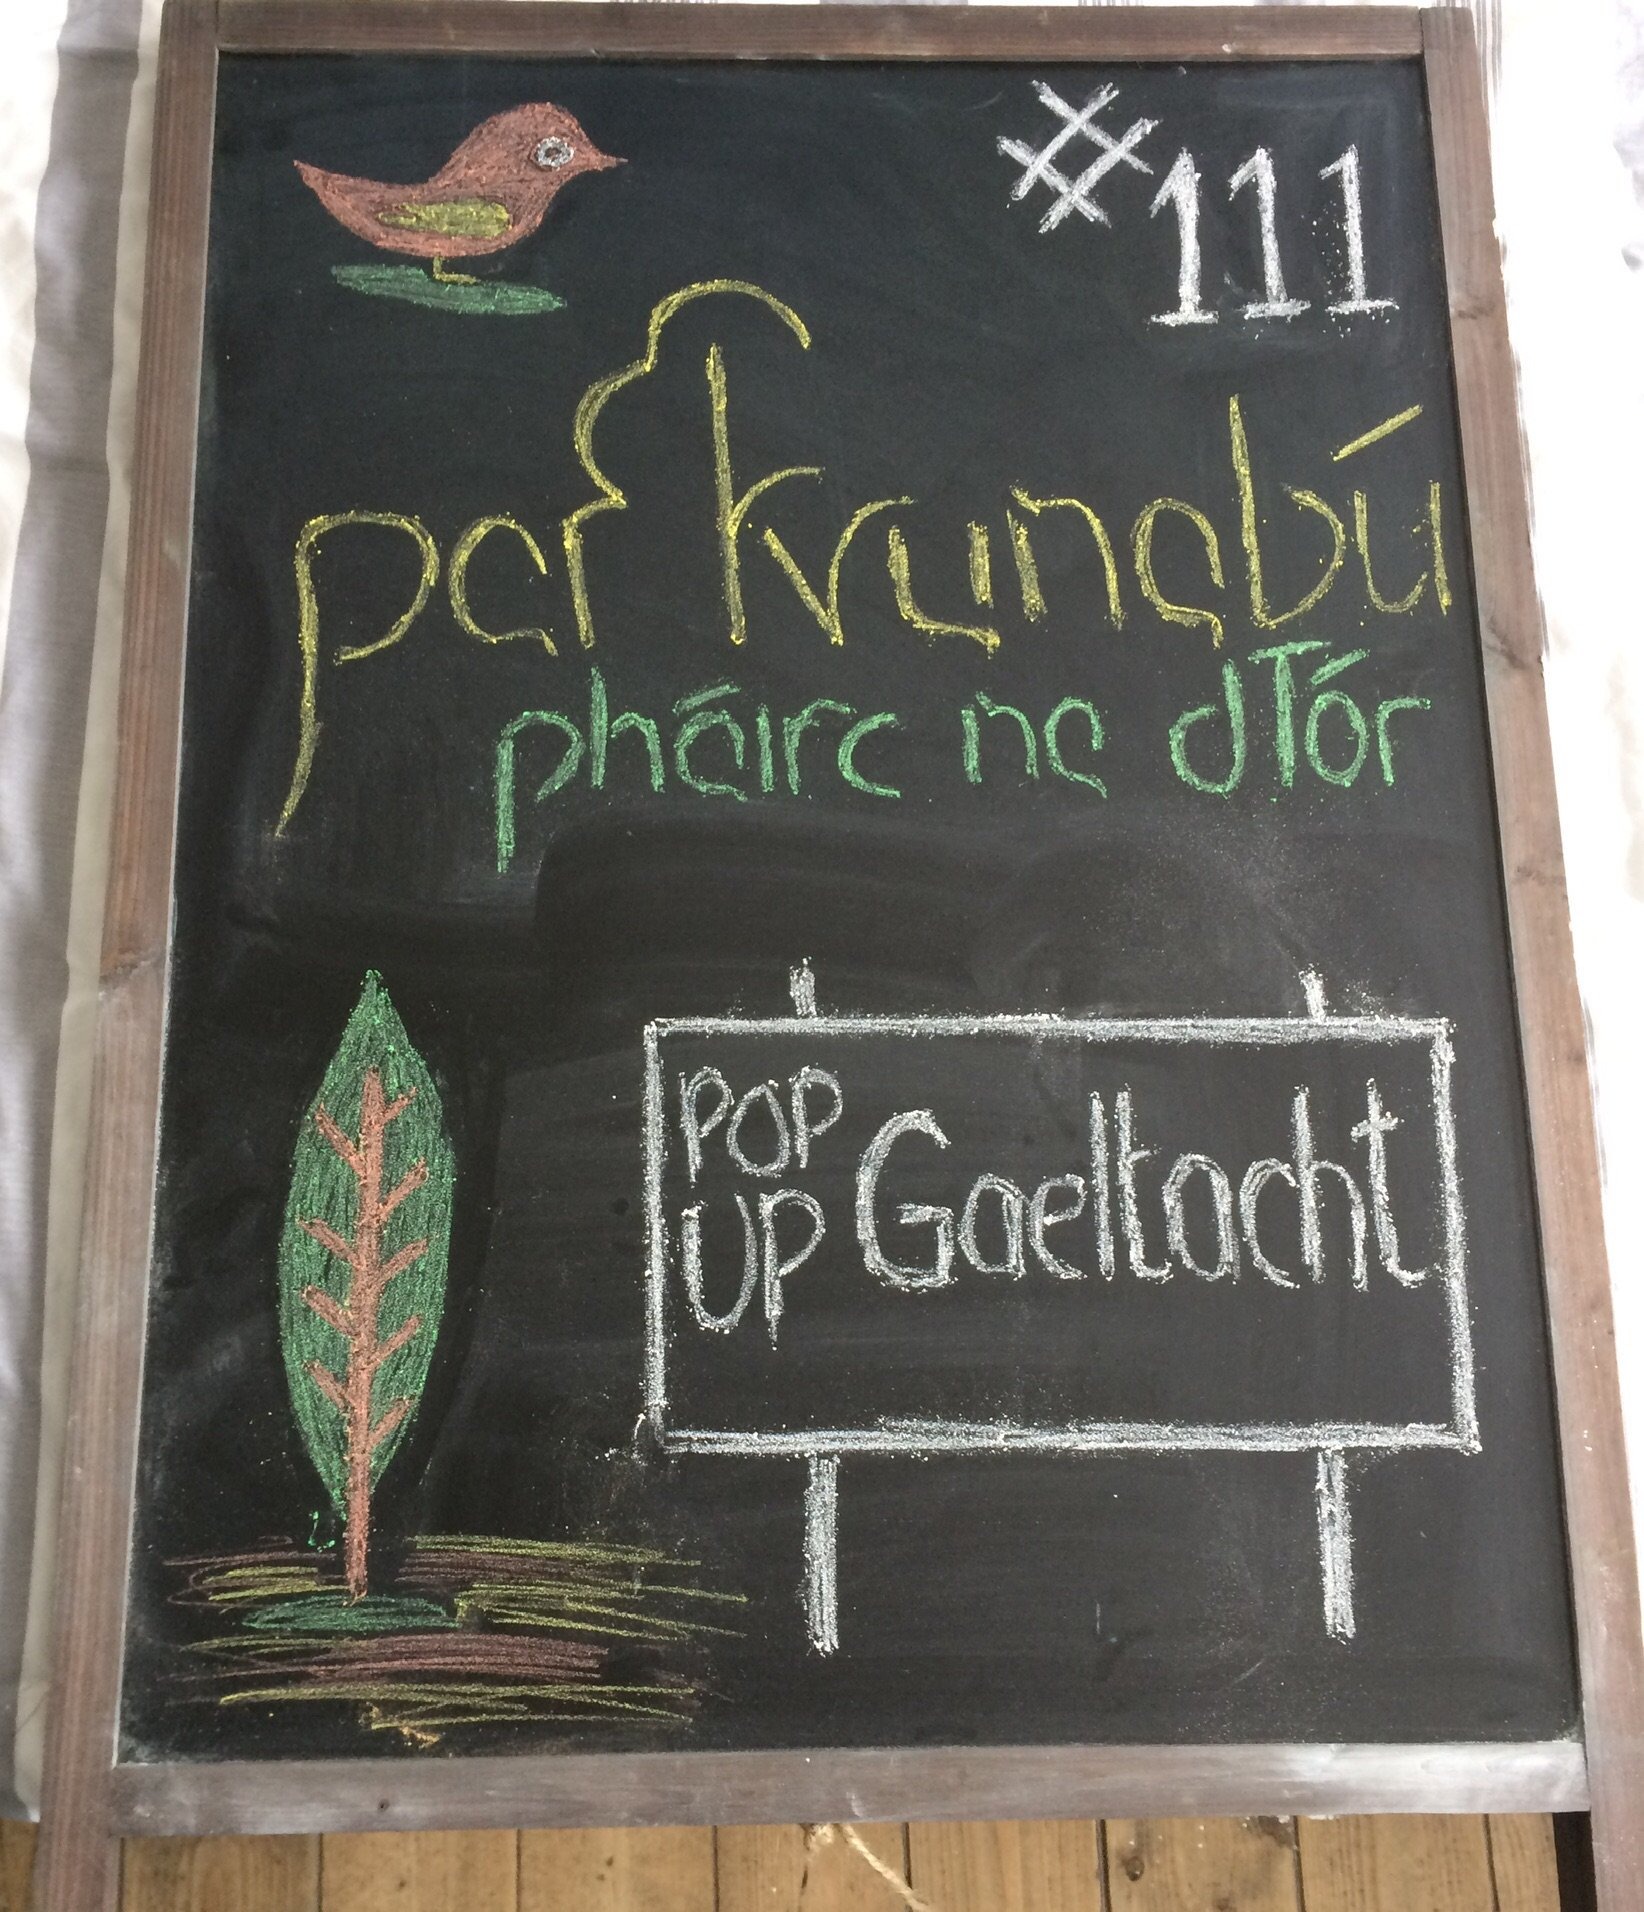 #111
parkrunabú
pháirc na dTór
POP
UP Gaeltacht